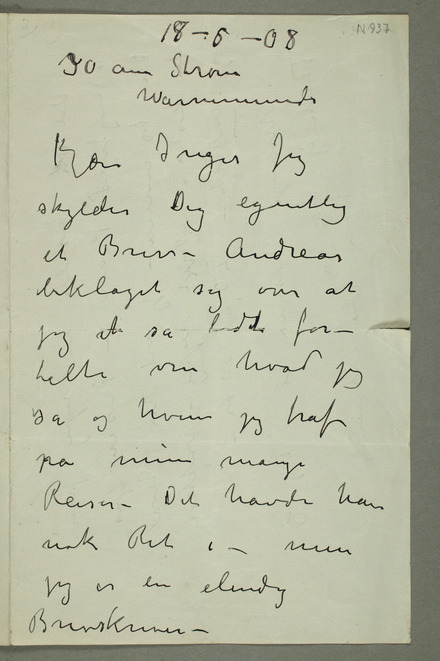 N 937
18-5-08
30 am Strom
Warnemünde
Kjære Inger Jeg
skylder Dig egentlig
et Brev – Andreas
beklaget sig over at
jeg så for-
talte om hvad jeg
så og hvem jeg traf
på mine mange
Reiser – Det havde han
nok Ret i – men
jeg er en elendig
Brevskriver –